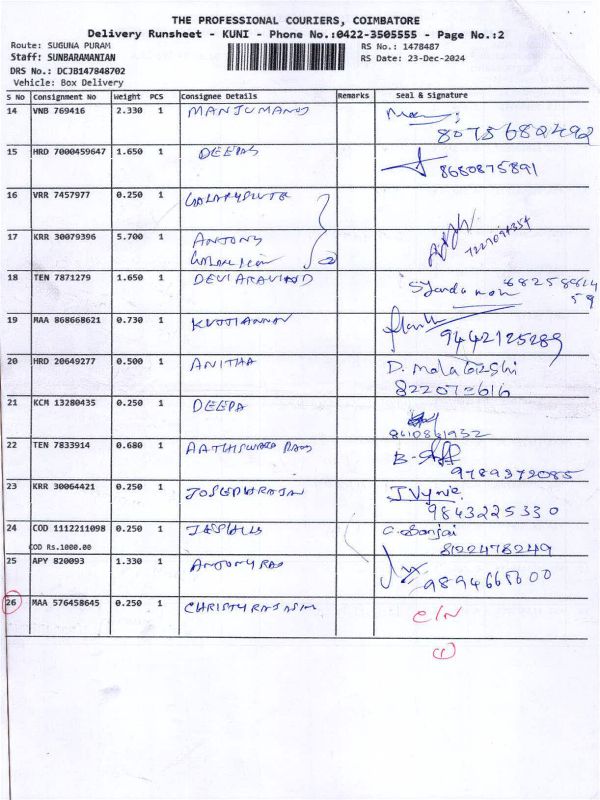 THE PROFESSIONAL COURIERS, COIMBATORE
Delivery Runsheet - KUNI - Phone No.:0422-3505555 - Page No.:2
Route: SUGUNA PURAM RS No.: 1478487
Staff: SUNBARAMANIAN RS Date: 23-Dec-2024
DRS No.: DCJB147848702
Vehicle: Box Delivery
S No Consignment No Weight PCS Consignee Details Remarks Seal & Signature
14 VNB 769416 2.330 1 MANJUMANOJ
8075682492
15 HRD 7000459647 1.650 1 DEEPAS 8680875891
16 VRR 7457977 0.250 1
17 KRR 30079396 5.700 1 ANTONY
18 TEN 7871279 1.650 1 DEVIARAVIND
59
19 MAA 868668621 0.730 1 KUTTIANNAN 9442125289
20 HRD 20649277 0.500 1 ANITHA D. Malatzshi
21 KCM 13280435 0.250 1 DEEPA
22 TEN 7833914 0.680 1
9789372085
23 KRR 30064421 0.250 1 JOSEPHRAJAN
9843225330
24 COD 1112211098 0.250 1 C. Sanjai
COD Rs.1000.00 8122478249
25 APY 820093 1.330 1 ANTONYRAJ
26 MAA 576458645 0.250 1 C/N
1